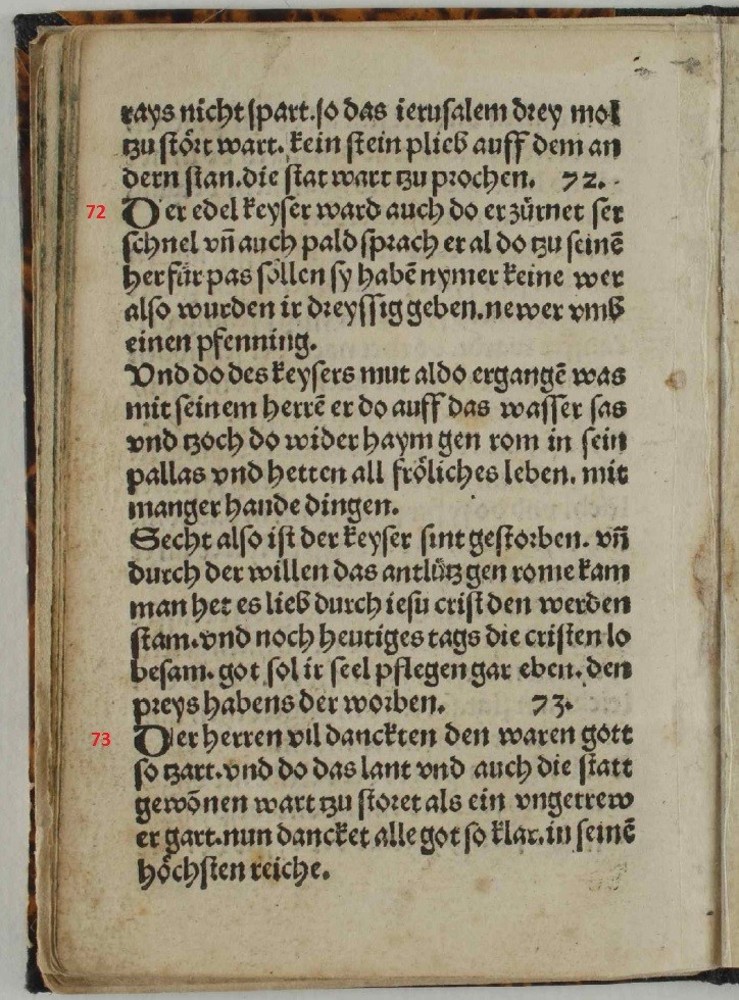 rays nicht ſpart.ſo das ieruſalem drey mol
tzu ſtoͤrt wart. kein ſtein plieb auff dem an
dern ſtan.die ſtat wart tzu prochen. 72.
72 Der edel keyſer ward auch do erzuͤrnet ſer
ſchnel vñ auch pald ſprach er al do tzu ſeinē
her fuͤr pas ſoͤllen ſy habē nymer keine wer
alſo wurden ir dreyſſig geben.newer vmb
einen pfenning.
Vnd do des keyſers mut aldo ergangē was
mit ſeinem herrē er do auff das waſſer ſas
vnd tzoch do wider haym gen rom in ſein
pallas vnd hetten all froͤliches leben. mit
manger hande dingen.
Secht alſo iſt der keyſer ſint geſtorben. vñ
durch der willen das antluͤtz gen rome kam
man het es lieb durch ieſu criſt den werden
ſtam.vnd noch heutiges tags die criſten lo
beſam. got ſol ir ſeel pflegen gar eben. den
preys habens der worben. 73.
73 Der herren vil danckten den waren gott
ſo tzart.vnd do das lant vnd auch die ſtatt
gewōnen wart tzu ſtoret als ein vngetrew
er gart.nun dancket alle got ſo klar.in ſeinē
hoͤchſten reiche.